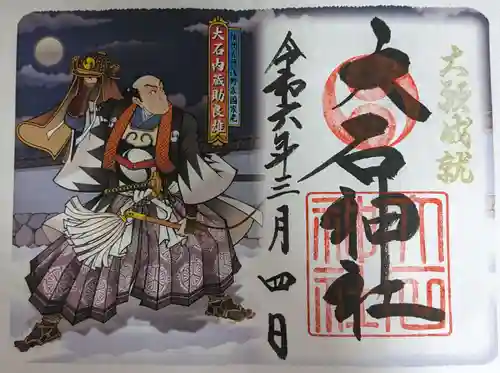 大願成就
大石神社
令和六年三月四日
大石内蔵助良雄